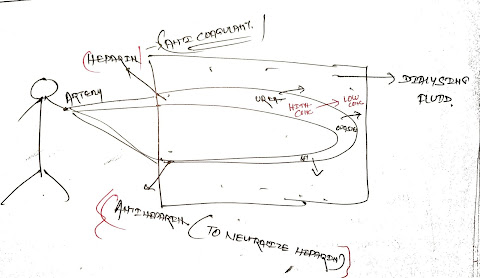 (ANTI COAGULANT)
(HEPARIN)
ARTERY
UREA
HIGH
CONC
LOW
CONC
DIALYSING
FLUID.
(ANTIHEPARIN (TO NEUTRALIZE HEPARIN)